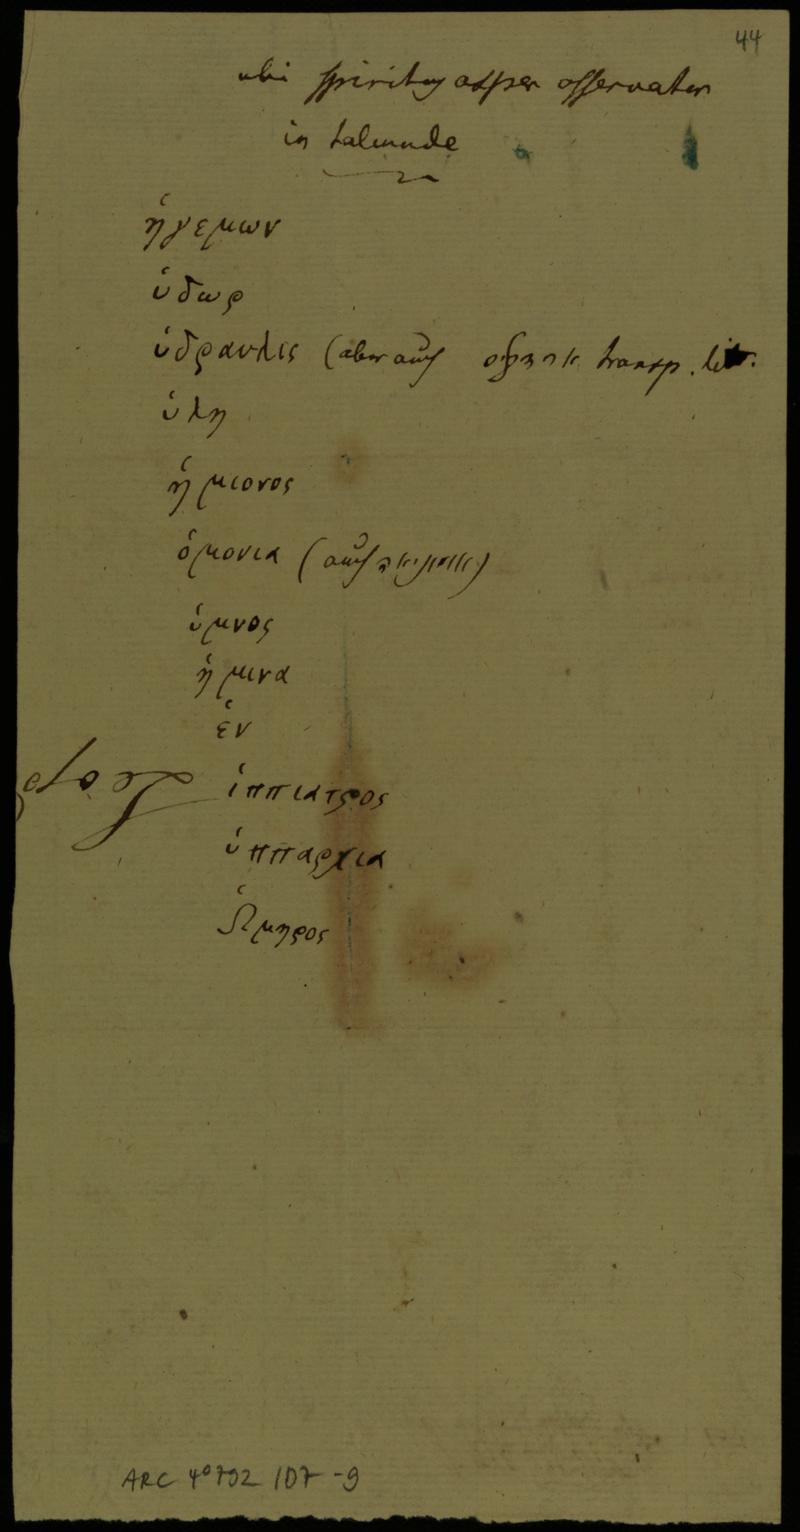 44
ubi spiritus asper observatur
in talmude
ἡγεμων
ὑδωρ
ὑδραυλις (aber auch transp. lit.
ὑλη
ἡμιονος
ὁμονια (auch
ὑμνος
ἡμινα
ἑν
ἱππιατρος
ὑππαρχια
Ὡμηρος
ARC 4° 792 / D7 - 9